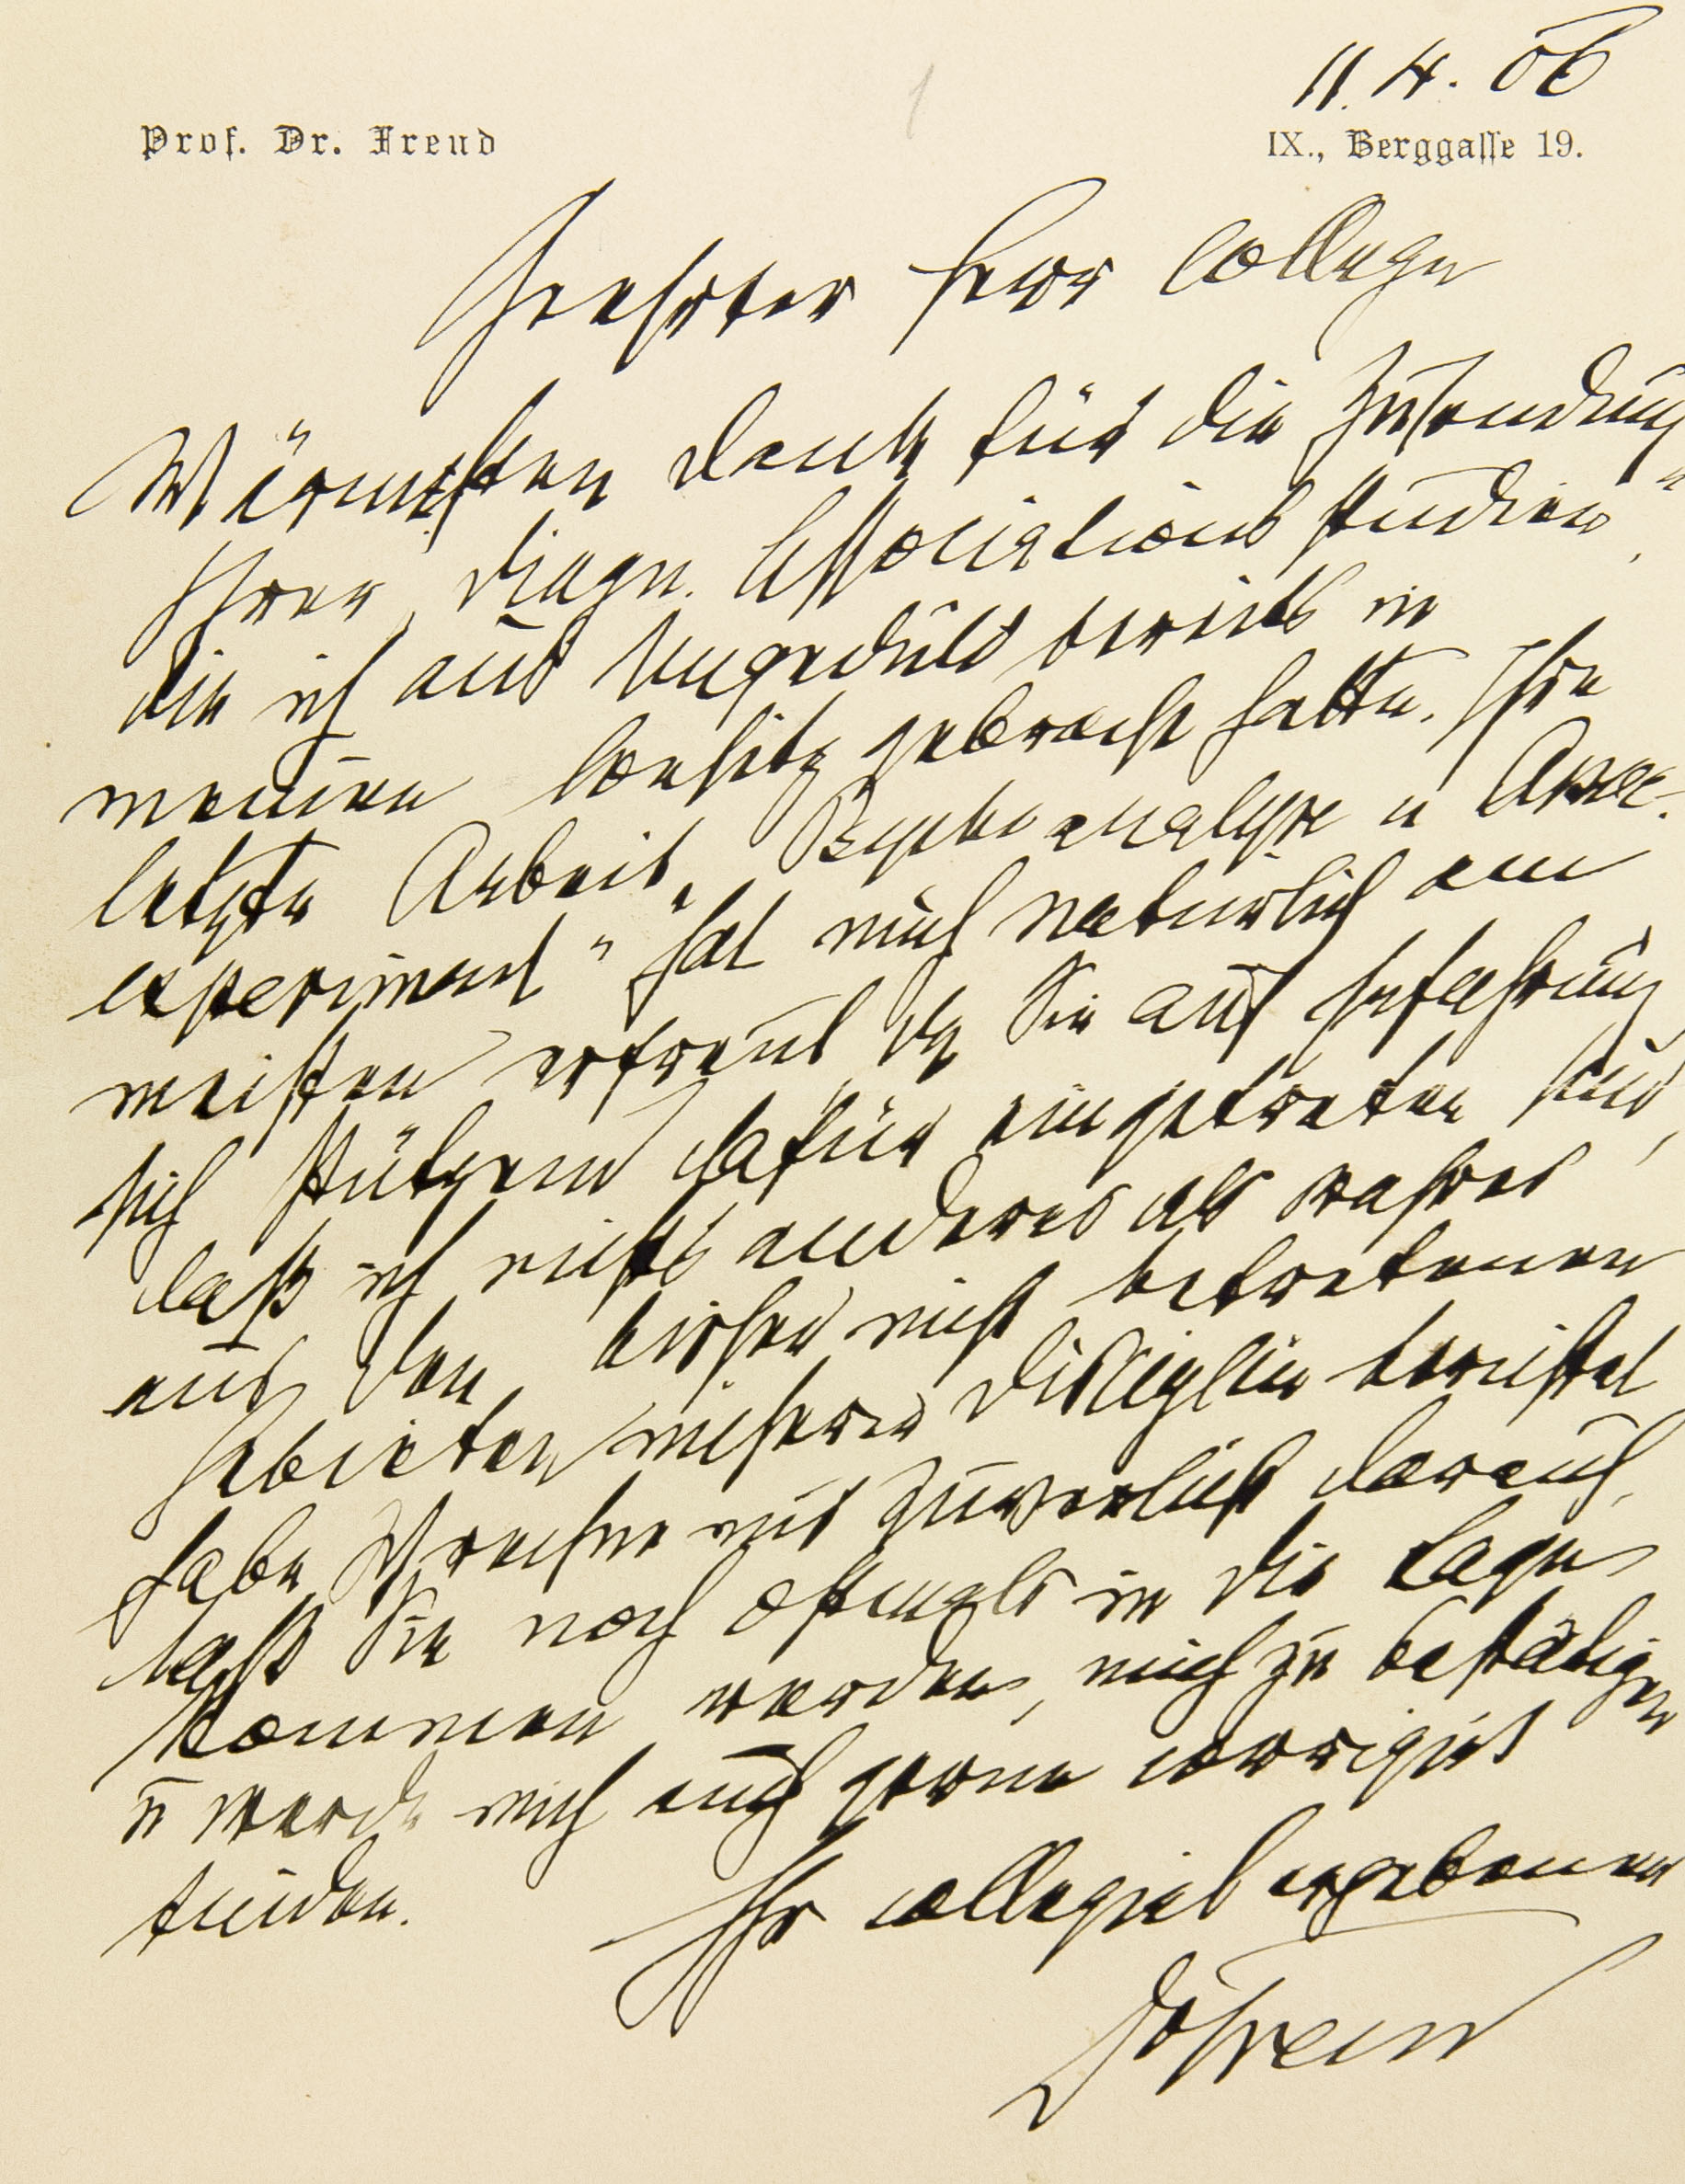 11. 4. 06
Prof. Dr. Freud
IX., Berggaſſe 19.
Geehrter Herr College
Wärmsten Dank für die Zusendung
Ihrer „Diagn. Associationsstudien“,
die ich aus Ungeduld bereits in
meinen Besitz gebracht hatte. Ihre
letzte Arbeit „Psychoanalyse u Assoc.
experiment“ hat mich natürlich am
meisten erfreut, da Sie auf Erfahrung
sich stützend dafür eingetreten sind,
daß ich nichts anderes als wahres
aus den bisher nicht betretenen
Gebieten unserer Disciplin berichtet
habe. Ich rechne mit Zuversicht darauf,
daß Sie noch oftmals in die Lage
kommen werden, mich zu bestätigen
u werde mich auch gerne corrigirt
finden.
Ihr collegial ergebener
Dr Freud